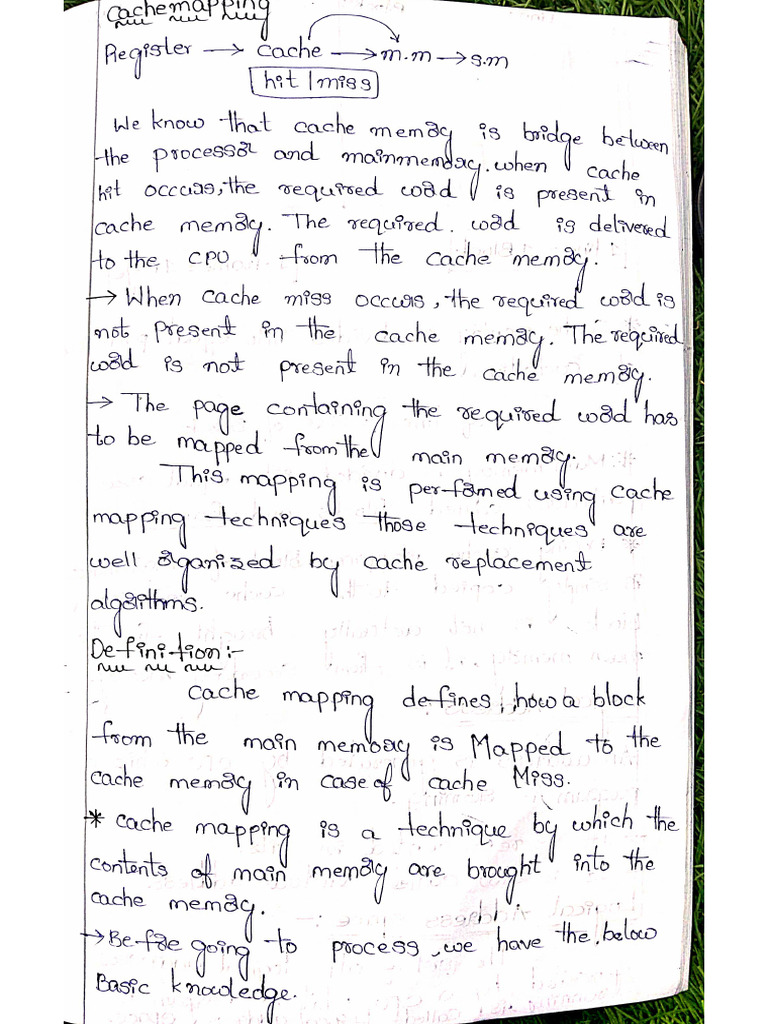 Cache mapping
Register → cache → m.m → s.m
hit | miss
We know that cache memory is bridge between
the processor and mainmemory. when cache
hit occurs, the required word is present in
cache memory. The required. word is delivered
to the CPU from the cache memory.
→ When cache miss occurs, the required word is
not present in the cache memory. The required
word is not present in the cache memory.
→ The page containing the required word has
to be mapped from the main memory.
This mapping is performed using cache
mapping techniques those techniques are
well organized by cache replacement
algorithms.
Definition:-
Cache mapping defines, how a block
from the main memory is Mapped to the
cache memory in case of cache Miss.
* Cache mapping is a technique by which the
contents of main memory are brought into the
cache memory.
→ Before going to process, we have the below
Basic knowledge.